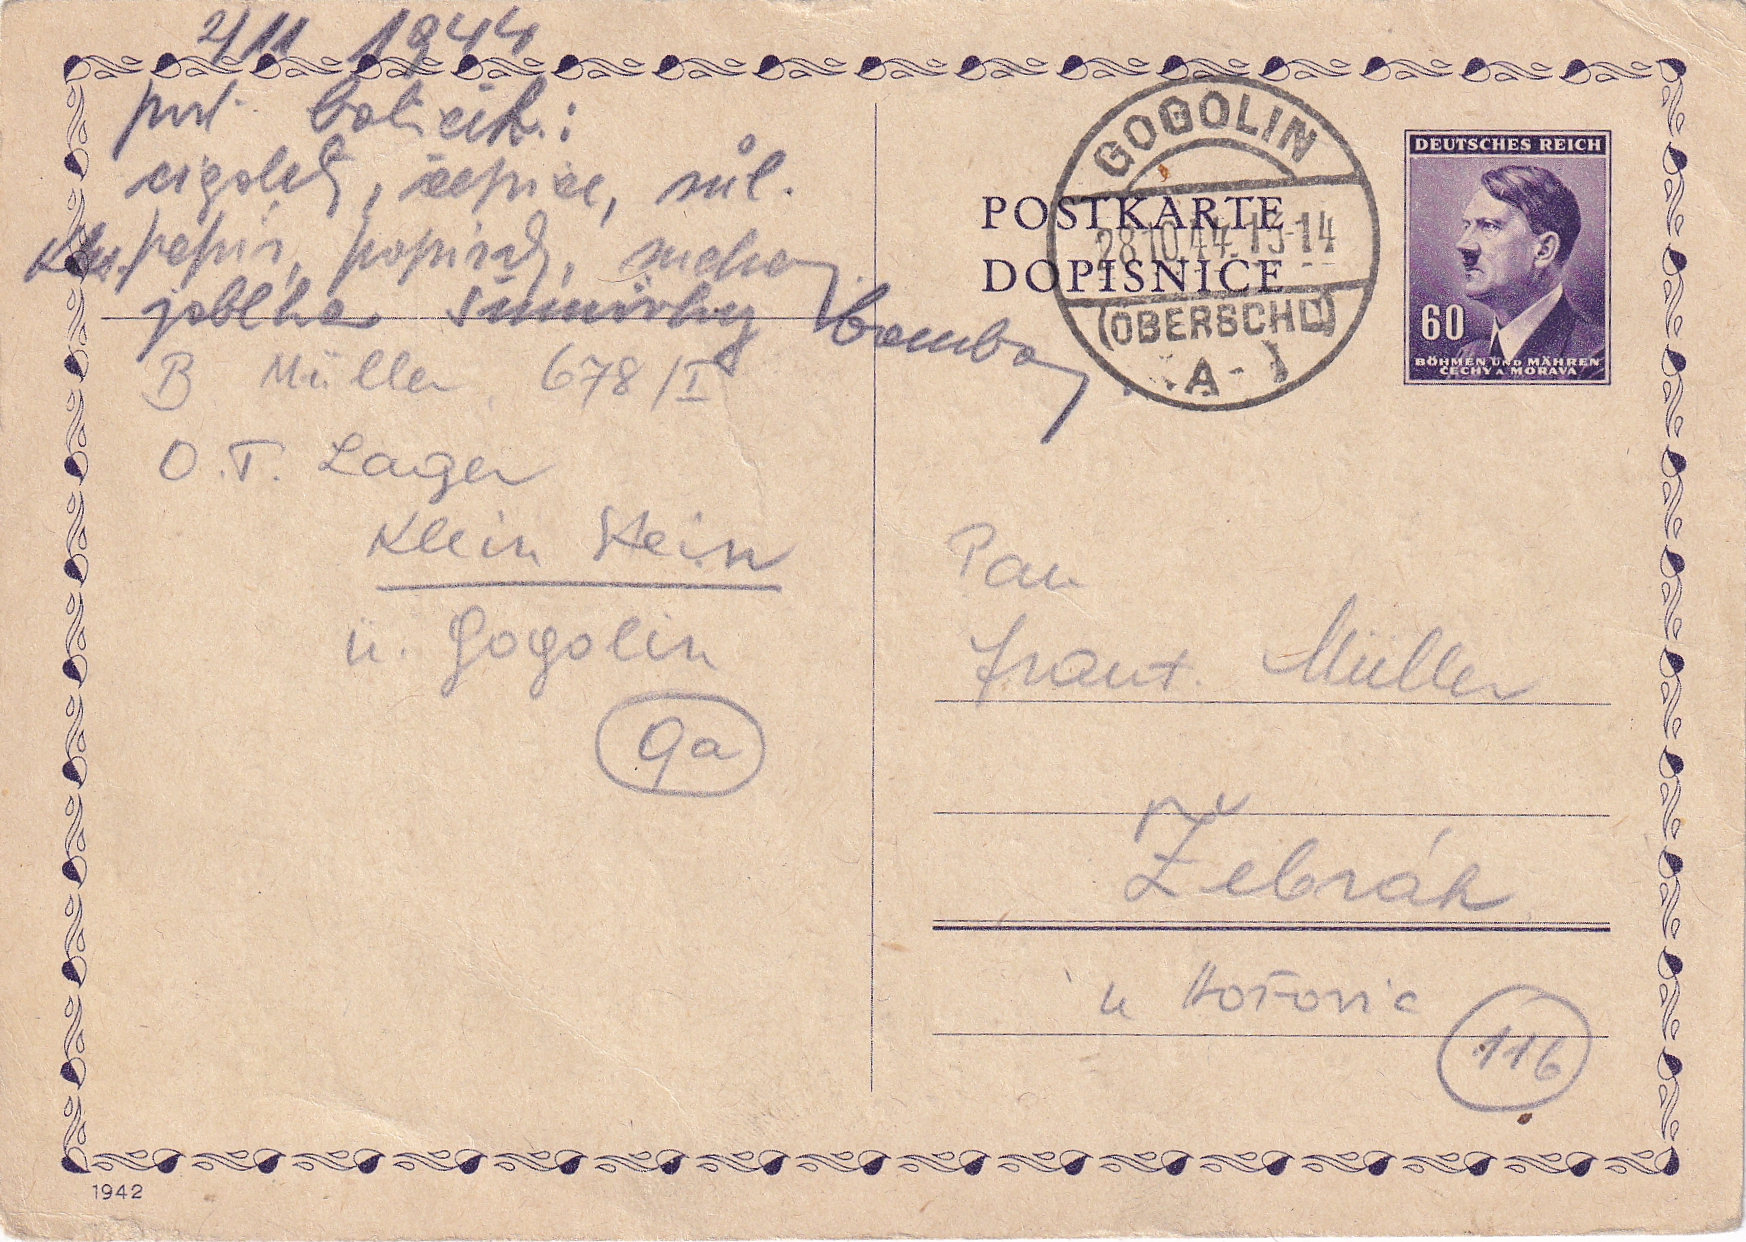 2/11 1944
cigarety, čepice, sůl.
papír, suchary
jablka
bomby
B Müller 678/I
O.T. Lager
Klein Stein
u. Gogolin
9a
POSTKARTE
DOPISNICE
GOGOLIN
28.10.44.13-14
(OBERSCHL)
A
DEUTSCHES REICH
60
BÖHMEN UND MÄHREN
ČECHY A MORAVA
Pan
Frant. Müller
Žebrák
u Hořovic
116
1942